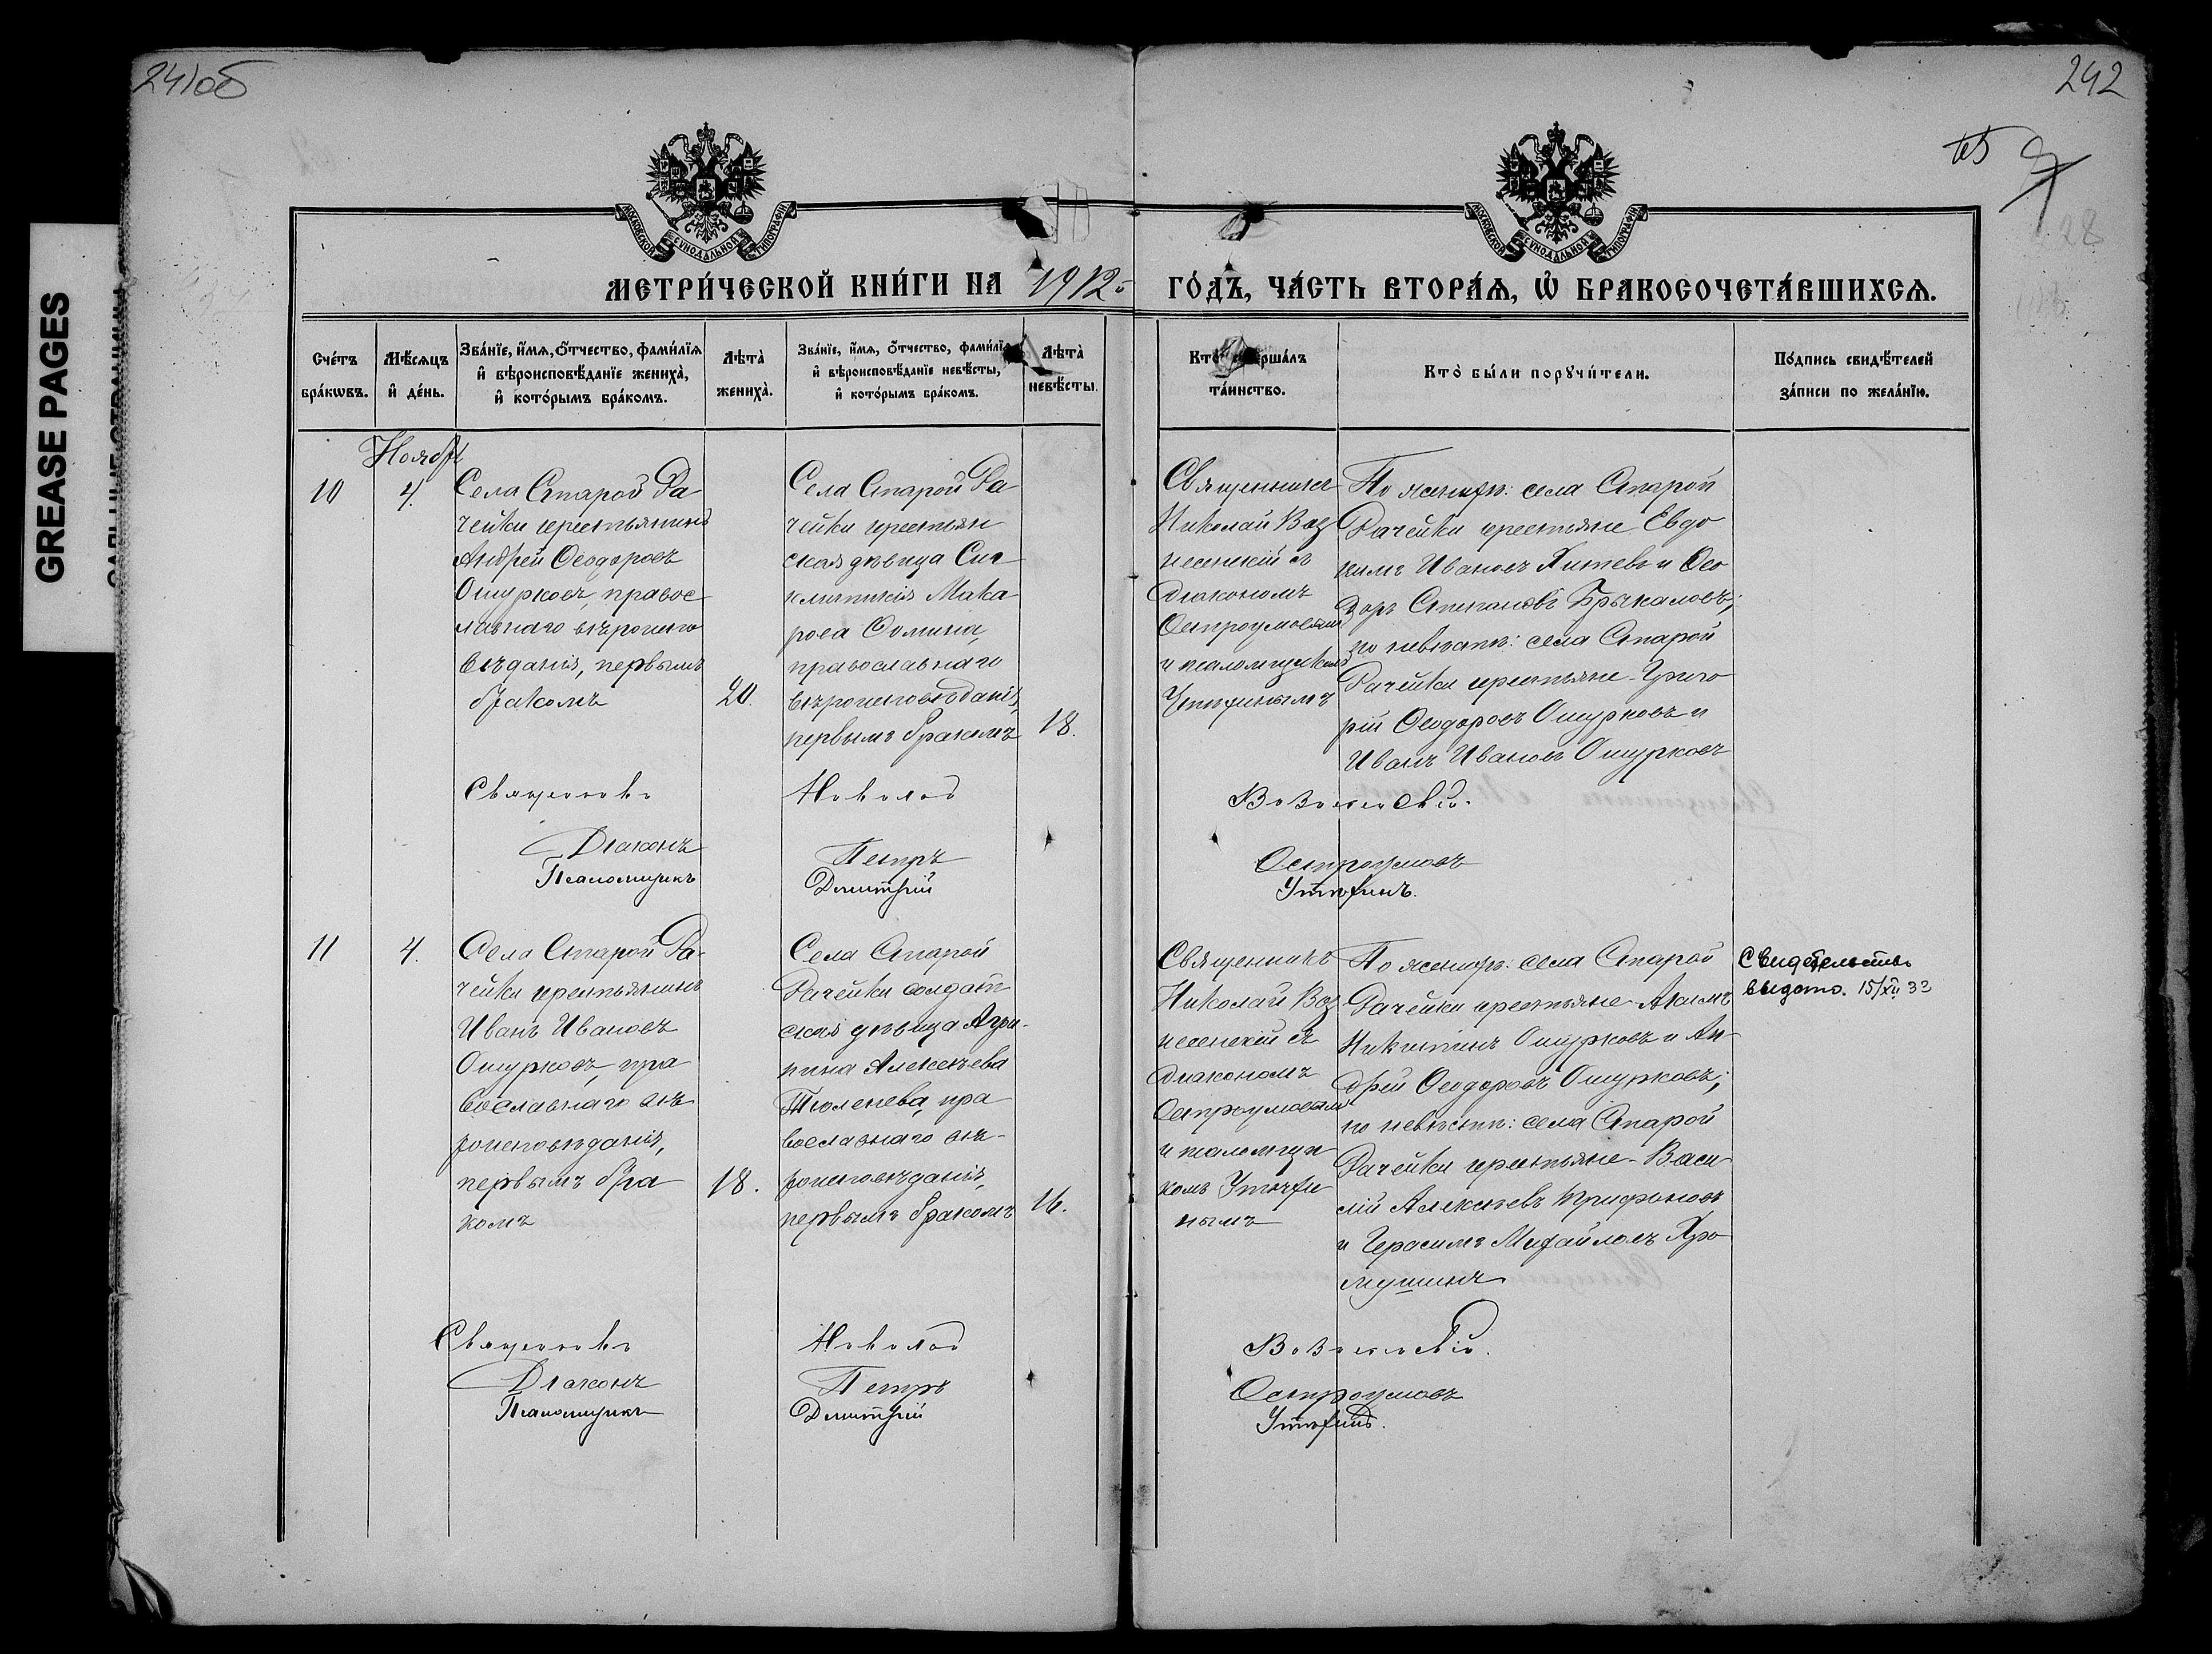 241об
242
65
28
GREASE PAGES
МОСКОВСКОЙ СѴНОДАЛЬНОЙ ТИПОГРАФІИ
МОСКОВСКОЙ СѴНОДАЛЬНОЙ ТИПОГРАФІИ
МЕТРИ́ЧЕСКОЙ КНИ́ГИ НА 1912 ГО́ДЪ, ЧА́СТЬ ВТОРА́Ѧ, Ѡ҆ БРАКОСОЧЕТА́ВШИХСѦ.
Сче́тъ
бра́кѡвъ.
Мѣ́сѧцъ
и҆ де́нь.
Зва́нїе, и҆́мѧ, ѻ҆́тчество, фами́лїѧ
и҆ вѣроисповѣ́данїе жениха̀,
и҆ кото́рымъ бра́комъ.
Лѣта̀
жениха̀.
Зва́нїе, и҆́мѧ, ѻ҆́тчество, фами́лїѧ
и҆ вѣроисповѣ́данїе невѣ́сты,
и҆ кото́рымъ бра́комъ.
Лѣта̀
невѣ́сты.
Кто̀ соверша́лъ
та́инство.
Кто̀ бы́ли порꙋчи́тели.
По́дпись свидѣ́телей
за́писи по жела́нїю.
Ноябрь
10
4.
Села Старой Ра
чейки крестьянинъ
Андрей Ѳеодоровъ
Ошурковъ, правос
лавнаго вѣроиспо
вѣданія, первымъ
бракомъ
20.
Села Старой Ра
чейки крестьян
ская дѣвица Син
клитикія Мака
рова Ѳомина,
православнаго
вѣроисповѣданія,
первымъ бракомъ
18.
Священникъ
Николай Воз
несенскій съ
діакономъ
Остроумовымъ
и псаломщикомъ
Утѣхинымъ
По женихѣ: села Старой
Рачейки крестьяне Евдо
кимъ Ивановъ Китевъ и Ѳео
доръ Степановъ Брыкаловъ;
по невѣстѣ: села Старой
Рачейки крестьяне Григо
рій Ѳеодоровъ Ошурковъ и
Иванъ Ивановъ Ошурковъ
Священникъ Николай Вознесенскій.
Діаконъ Петръ Остроумовъ
Псаломщикъ Димитрій Утѣхинъ.
11
4.
Села Старой Ра-
чейки крестьянинъ
Иванъ Ивановъ
Ошурковъ, пра
вославнаго вѣ
роисповѣданія,
первымъ бра
комъ
18.
Села Старой
Рачейки солдат
ская дѣвица Агри-
пина Алексѣева
Тюленева, пра
вославнаго вѣ-
роисповѣданія,
первымъ бракомъ
16.
Священникъ
Николай Воз
несенскій съ
діакономъ
Остроумовымъ
и псаломщи
комъ Утѣхи
нымъ
По женихѣ: села Старой
Рачейки крестьяне Акимъ
Никитинъ Ошурковъ и Ан-
дрей Ѳеодоровъ Ошурковъ;
по невѣстѣ: села Старой
Рачейки крестьяне Васи
лій Алексѣевъ Трифоновъ
и Герасимъ Михайловъ Хро
мушинъ
Свидетельство
выдано. 15/XII 33
Священникъ Николай Вознесенскій.
Діаконъ Петръ Остроумовъ
Псаломщикъ Димитрій Утѣхинъ.